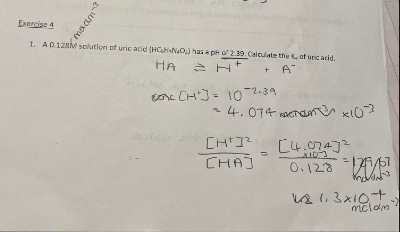 Exercise 4
moldm⁻³
1. A 0.128M solution of uric acid (HC₅H₃N₄O₃) has a pH of 2.39. Calculate the Kₐ of uric acid.
HA ⇌ H⁺ + A⁻
conc [H⁺] = 10⁻²·³⁹
= 4.074 ×10⁻³
[H⁺]² / [HA] = [4.074 ×10⁻³]² / 0.128 =
1.3 ×10⁻⁴
moldm⁻³